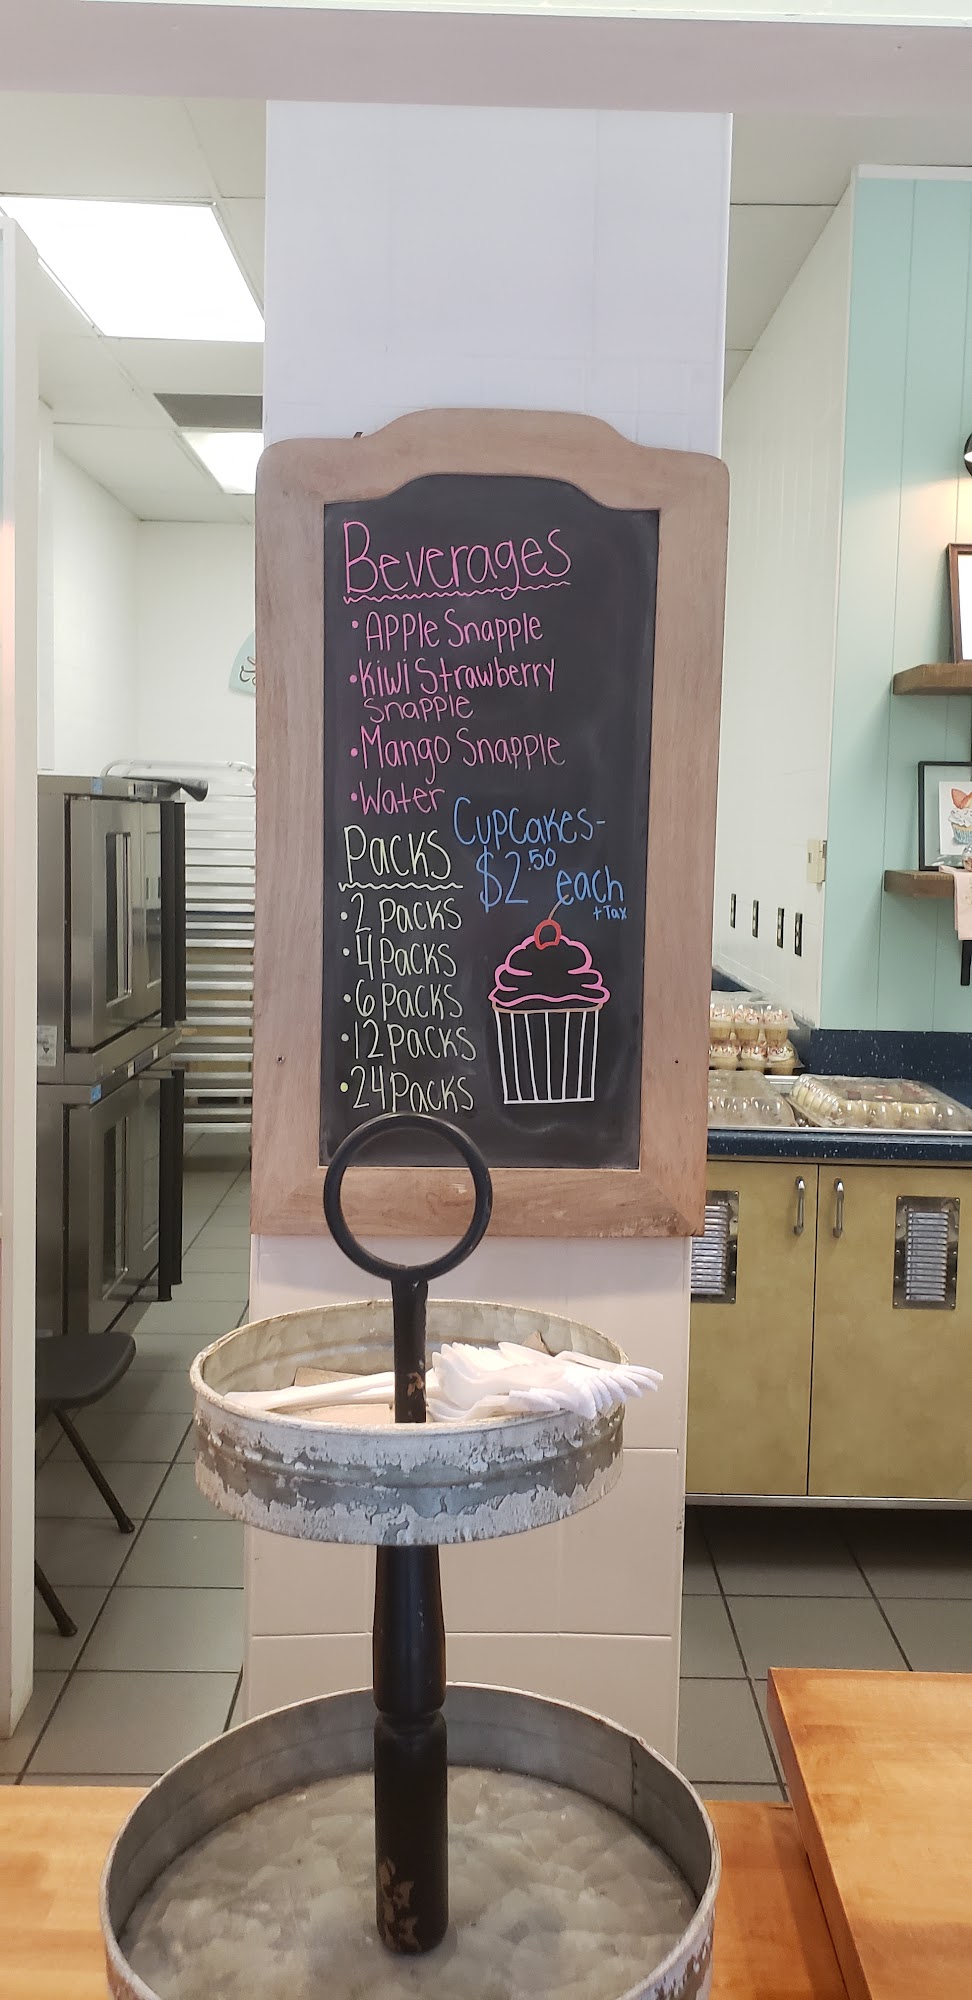 Beverages
• Apple Snapple
• Kiwi Strawberry
Snapple
• Mango Snapple
• Water
Cupcakes-
$2.50 each
+Tax
Packs
• 2 Packs
• 4 Packs
• 6 Packs
• 12 Packs
• 24 Packs